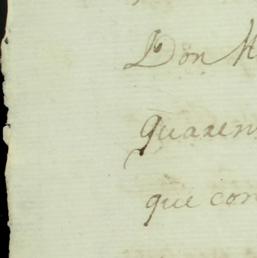 Don
quaren
que con